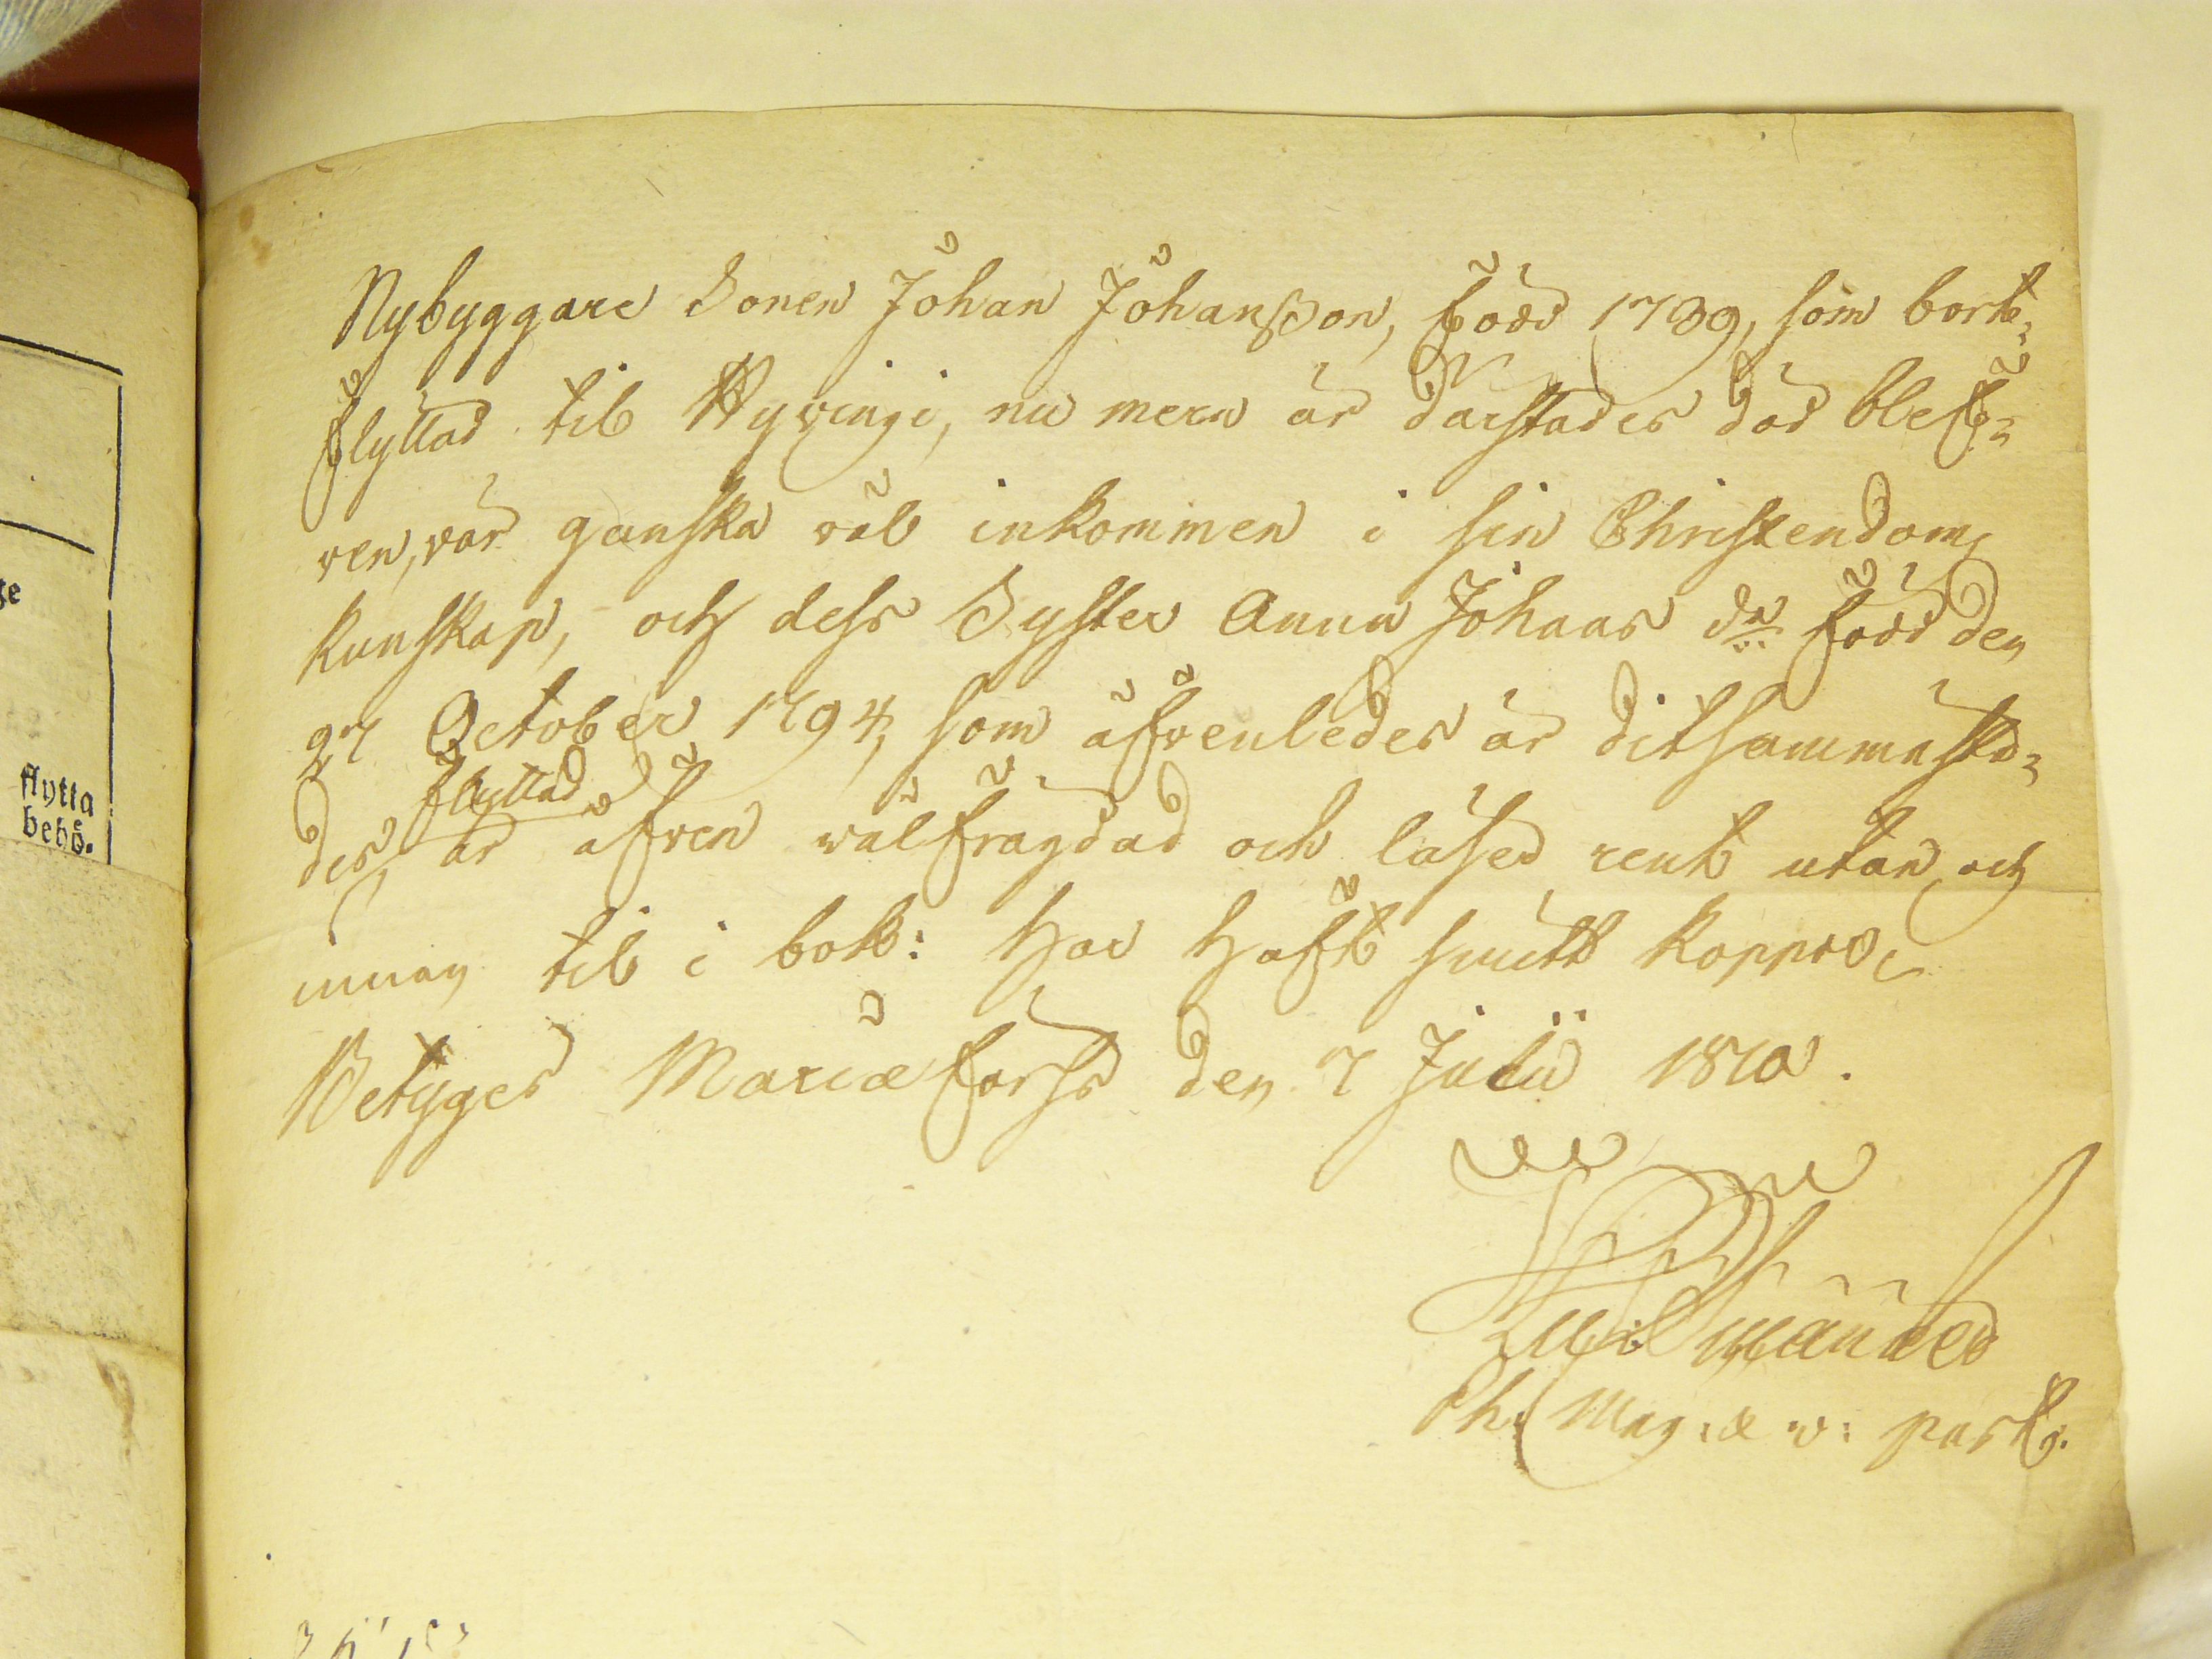 Nybyggare Sonen Johan Johansson, född 1789, som bort=
flyttad til Hyvingi, nu mera är därstädes död blef=
ven, var ganska väl inkommen i sin Christendoms
kunskap, och dess Syster Anna Johans dr född den
27 October 1794, som äfvenledes är ditsammastä=
des flyttad är äfven välfrägdad och läser rent utan och
innan til i bok: har haft smitt koppor,
Betyges Mariæfors den 7 Julii 1810.
Ph: Mag: & v: past:
ge
flytta
behö.